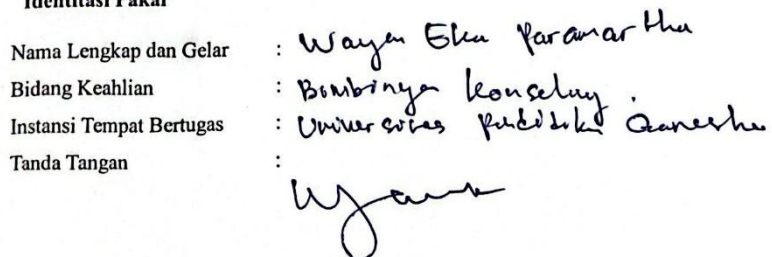 Identitas Pakar
Nama Lengkap dan Gelar : Wayan Eka Paramartha
Bidang Keahlian : Bimbingan Konseling.
Instansi Tempat Bertugas : Universitas Pendidikan Ganesha
Tanda Tangan :